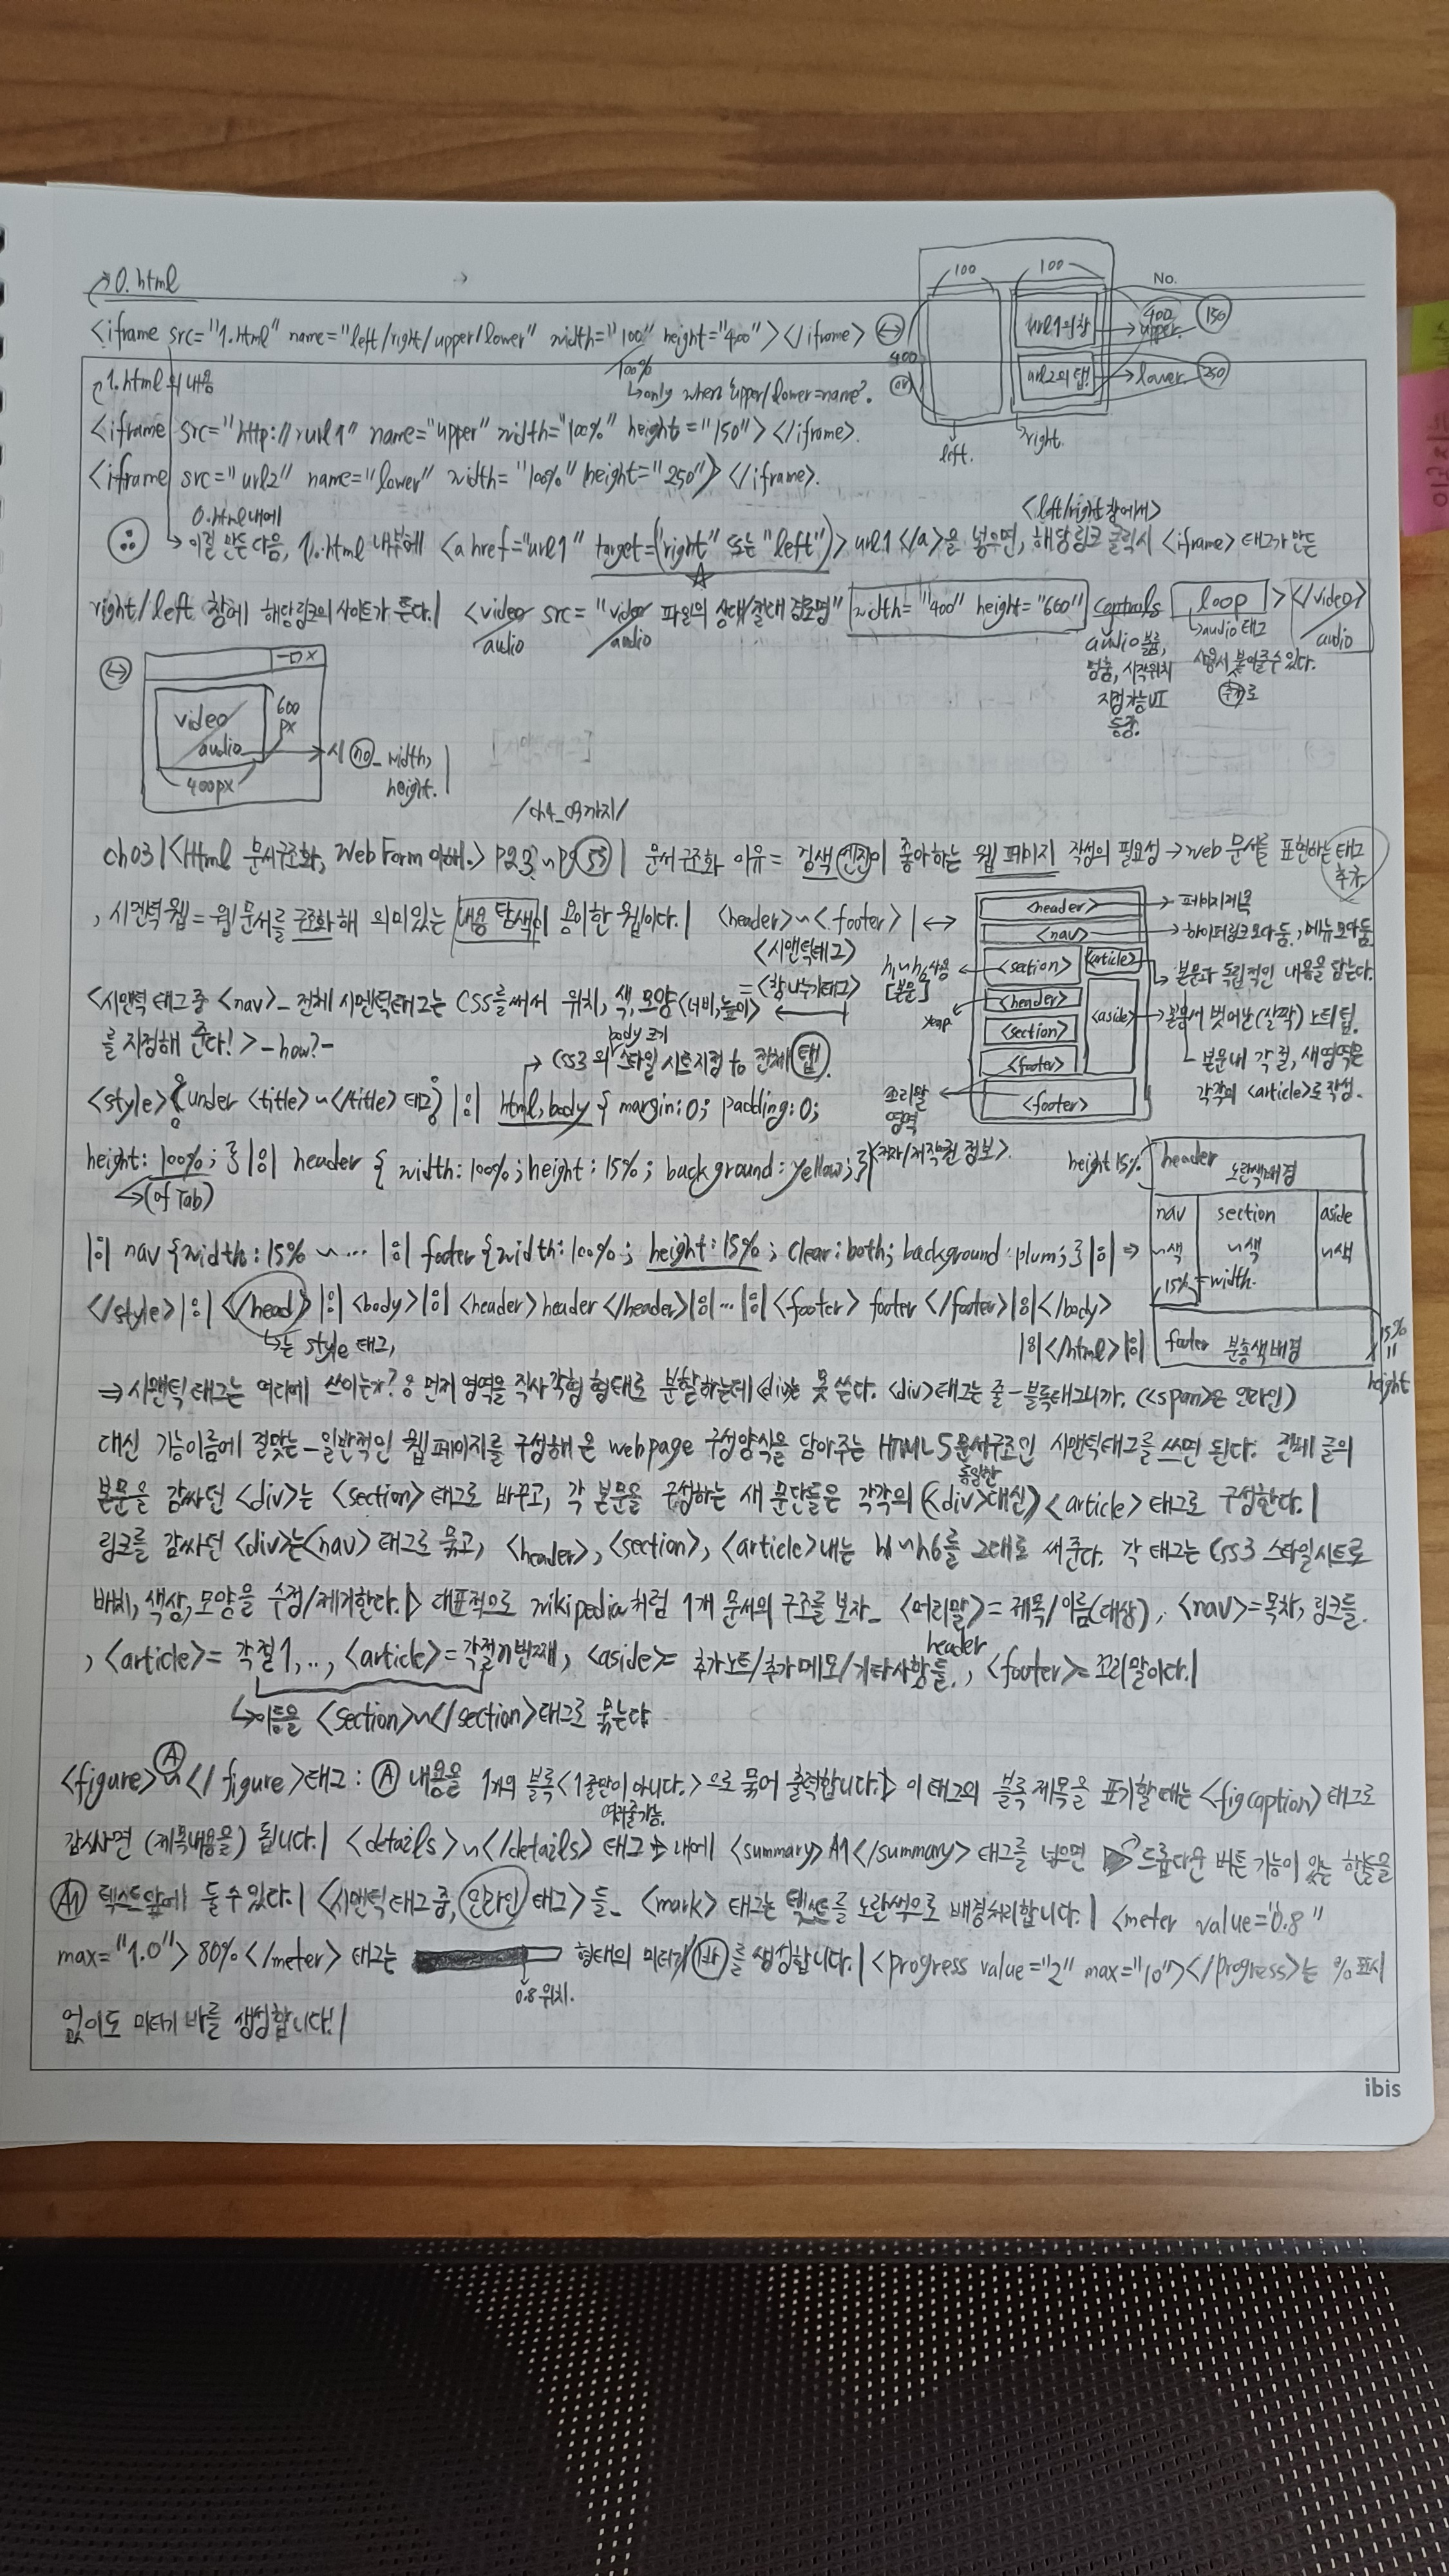 0.html
No.
100 100
<iframe src="1.html" name="left/right/upper/lower" width="100" height="400"></iframe> ↔
100%
↳only when upper/lower=name.
400
url1의 창 → 400 upper. 150
url2의 탭! → lower. 250
left. right.
1.html의 내용
<iframe src="http://url1" name="upper" width="100%" height="150"></iframe>.
<iframe src="url2" name="lower" width="100%" height="250"></iframe>.
0.html내에
<left/right 창에서>
이걸 만든 다음, 1.html 내부에 <a href="url1" target=("right" 또는 "left")> url1 </a>을 넣으면, 해당링크 클릭시 <iframe> 태그가 만든
right/left 창에 해당링크의 사이트가 뜬다.| <video src="video 파일의 상대/절대 경로명" width="400" height="600" controls loop ></video>
audio audio audio
audio 볼륨, 멈춤, 시작위치 지정가능 UI 등장.
↳audio 태그 사용시 붙여줄 수 있다. 추가로
video
audio → 시 no_ width, height.
600 px
400px
/ch4_09까지/
ch03|<Html 문서구조화, Web Form 이해.> P23~P 55| 문서구조화 이유 = 검색엔진이 좋아하는 웹 페이지 작성의 필요성 → web 문서를 표현하는 태그 추가.
, 시멘틱 웹 = 웹 문서를 구조화해 의미있는 내용 탐색이 용이한 웹이다.| <header>~<footer> |↔
<시맨틱태그>
=<창나누기태그>
<header> → 페이지제목
<nav> → 하이퍼링크 모아둠., 메뉴 모아둠
<section> <article>
h1~h6사용 [본문]
본문과 독립적인 내용을 담는다.
<header>
<section> <aside> → 본문서 벗어난(살짝) 노트팁.
본문내 각 절, 새영역은 각각의 <article>로 작성.
<footer>
꼬리말 영역
<footer>
<저자/저작권 정보>.
<시맨틱 태그 중 <nav>_ 전체 시멘틱태그는 CSS를 써서 위치, 색, 모양<너비,높이>
를 지정해 준다!> -how?-
body 크기
→ CSS3의 스타일 시트지정 to 전체 탭.
<style>{under <title>~</title> 태그} |:| html,body { margin:0; padding:0;
height: 100%; } |:| header { width:100%; height:15%; background:yellow; }
↳(of Tab)
height 15%
header 노란색배경
nav section aside
~색 ~색 ~색
15%=width.
footer 분홍색배경
15% = height
|:| nav {width:15% ~ ... |:| footer {width:100%; height:15%; clear:both; background:plum; } |:| ⇒
</style>|:| </head> |:| <body>|:| <header>header</header>|:|...|:|<footer> footer </footer>|:|</body>
↳는 style 태그,
|:|</html>|:|
⇒ 시맨틱 태그는 어디에 쓰이는가? 먼저 영역을 직사각형 형태로 분할하는데 <div>는 못 쓴다. <div>태그는 줄-블록태그니까. (<span>은 인라인)
대신 기능이름에 걸맞는_일반적인 웹 페이지를 구성해 온 webpage 구성양식을 담아주는 HTML5문서구조인 시맨틱태그를 쓰면 된다. 전체 글의
동일한
본문을 감싸던 <div>는 <section> 태그로 바꾸고, 각 본문을 구성하는 새 문단들은 각각의 (<div>대신) <article> 태그로 구성한다.|
링크를 감싸던 <div>는 <nav> 태그로 묶고, <header>, <section>, <article>내는 h1~h6를 그대로 써준다. 각 태그는 CSS3 스타일시트로
배치, 색상, 모양을 수정/제거한다.|▷ 대표적으로 wikipedia처럼 1개 문서의 구조를 보자_ <머리말>= 제목/이름(대상), <nav>=목차, 링크들.
header
, <article>= 각절1,.., <article>=각절n번째, <aside>= 추가노트/추가메모/기타사항들., <footer>=꼬리말이다.|
↳이들을 <section>~</section>태그로 묶는다
<figure>Ⓐ~</figure>태그 : Ⓐ 내용을 1개의 블록<1줄만이 아니다.>으로 묶어 출력합니다.|▷ 이 태그의 블록 제목을 표기할 때는 <figcaption>태그로
여러줄가능.
감싸시면 (제목내용을) 됩니다.| <details>~</details> 태그 내에 <summary>A1</summary> 태그를 넣으면 ▶ 드롭다운 버튼 기능이 있는 핸들을
A1 텍스트앞에 둘 수 있다.| <시맨틱 태그 중, 인라인 태그>들_ <mark> 태그는 텍스트를 노란색으로 배경처리합니다.| <meter value="0.8"
max="1.0"> 80%</meter> 태그는 형태의 미터기 바를 생성합니다.|<progress value="2" max="10"></progress>는 %표시
0.8 위치.
없이도 미터기 바를 생성합니다!|
ibis